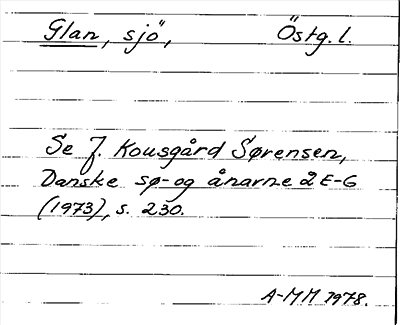 Glan, sjö, Östg.l.
Se J. Kousgård Sørensen,
Danske sø- og ånarne 2 E-G
(1973), s. 230.
A-MM 1978.